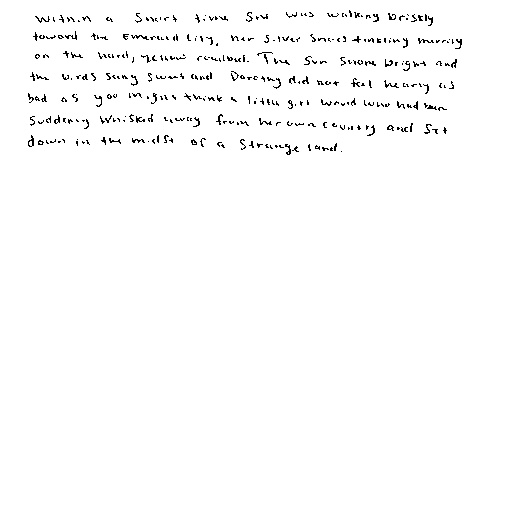 Within a short time she was walking briskly
toward the Emerald City, her Silver Shoes tinkling merrily
on the hard, yellow roadbed. The sun shone bright and
the birds sang sweet and Dorothy did not feel nearly as
bad as you might think a little girl would who had been
suddenly whisked away from her own country and set
down in the midst of a strange land.